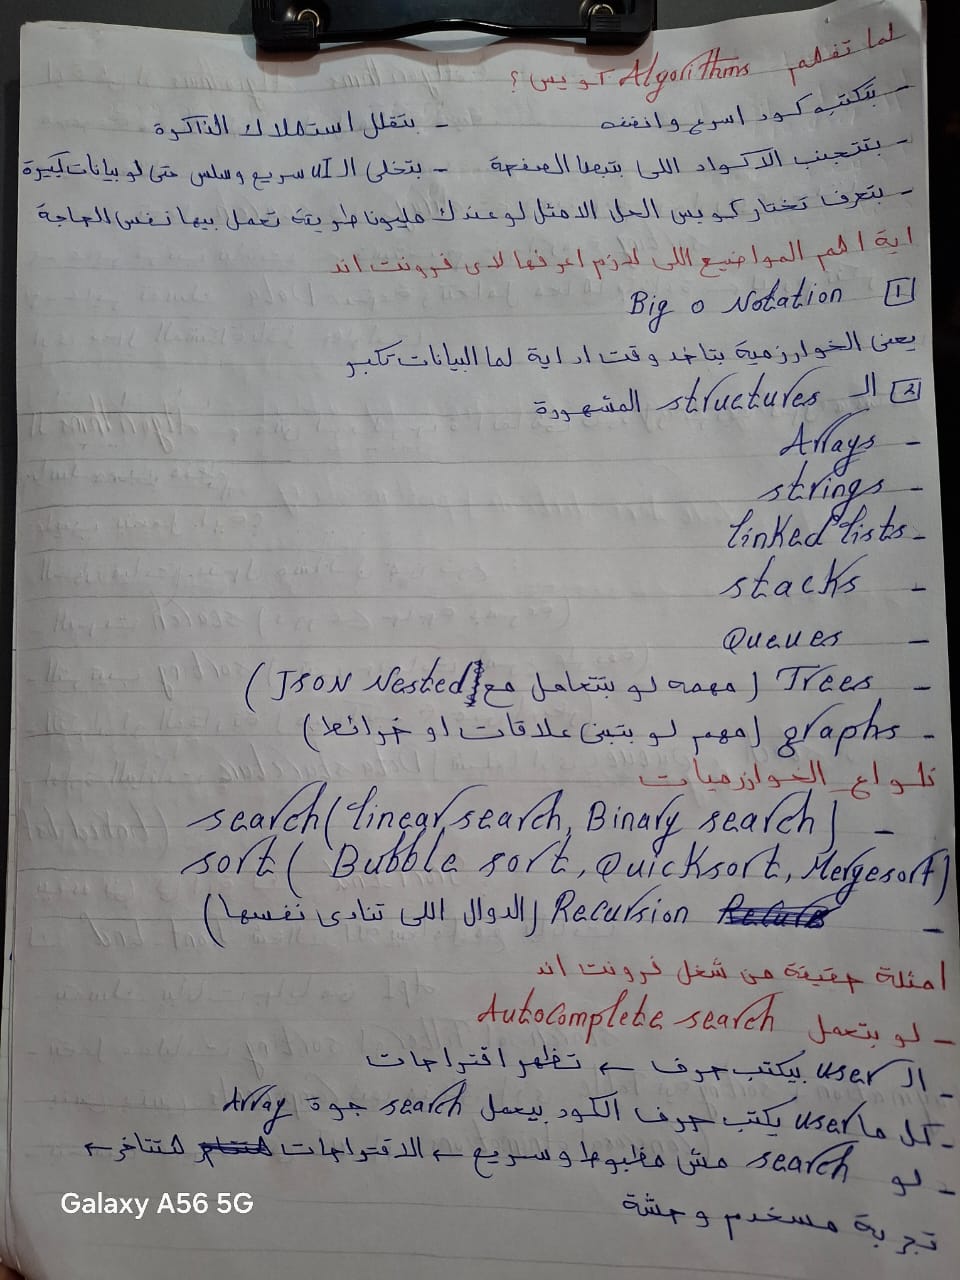 لما تفهم Algorithms كويس ؟
- بتكتب كود اسرع وانضف - بتقلل استهلاك الذاكرة
- بتتجنب الاكواد اللى بتبطأ الصفحة - بتخلى الـ UI سريع وسلس حتى لو بيانات كبيرة
- بتعرف تختار كويس الحل الامثل لو عندك مليون طريقة تعمل بيها نفس الحاجة
اية اهم المواضيع اللى لازم اعرفها لاى فرونت اند
1 Big o Notation
يعنى الخوارزمية بتاخد وقت اد اية لما البيانات تكبر
2 الـ structures المشهورة
- Arrays
- strings
- linked lists
- stacks
- Queues
- Trees (مهمه لو بتتعامل مع JSON Nested)
- graphs (مهم لو بتبنى علاقات او خرائط)
انواع الخوارزميات
- search (linear search, Binary search)
sort ( Bubble sort, Quicksort, Mergesort)
- Recursion (الدوال اللى تنادى نفسها)
امثلة حقيقة من شغل فرونت اند
- لو بتعمل Autocomplete search
- الـ user بيكتب حرف ← تظهر اقتراحات
- كل ما user يكتب حرف الكود بيعمل search جوة Array
- لو search مش مظبوط وسريع ← الاقتراحات هتتاخر ←
تجربة مسخدم وحشة
Galaxy A56 5G